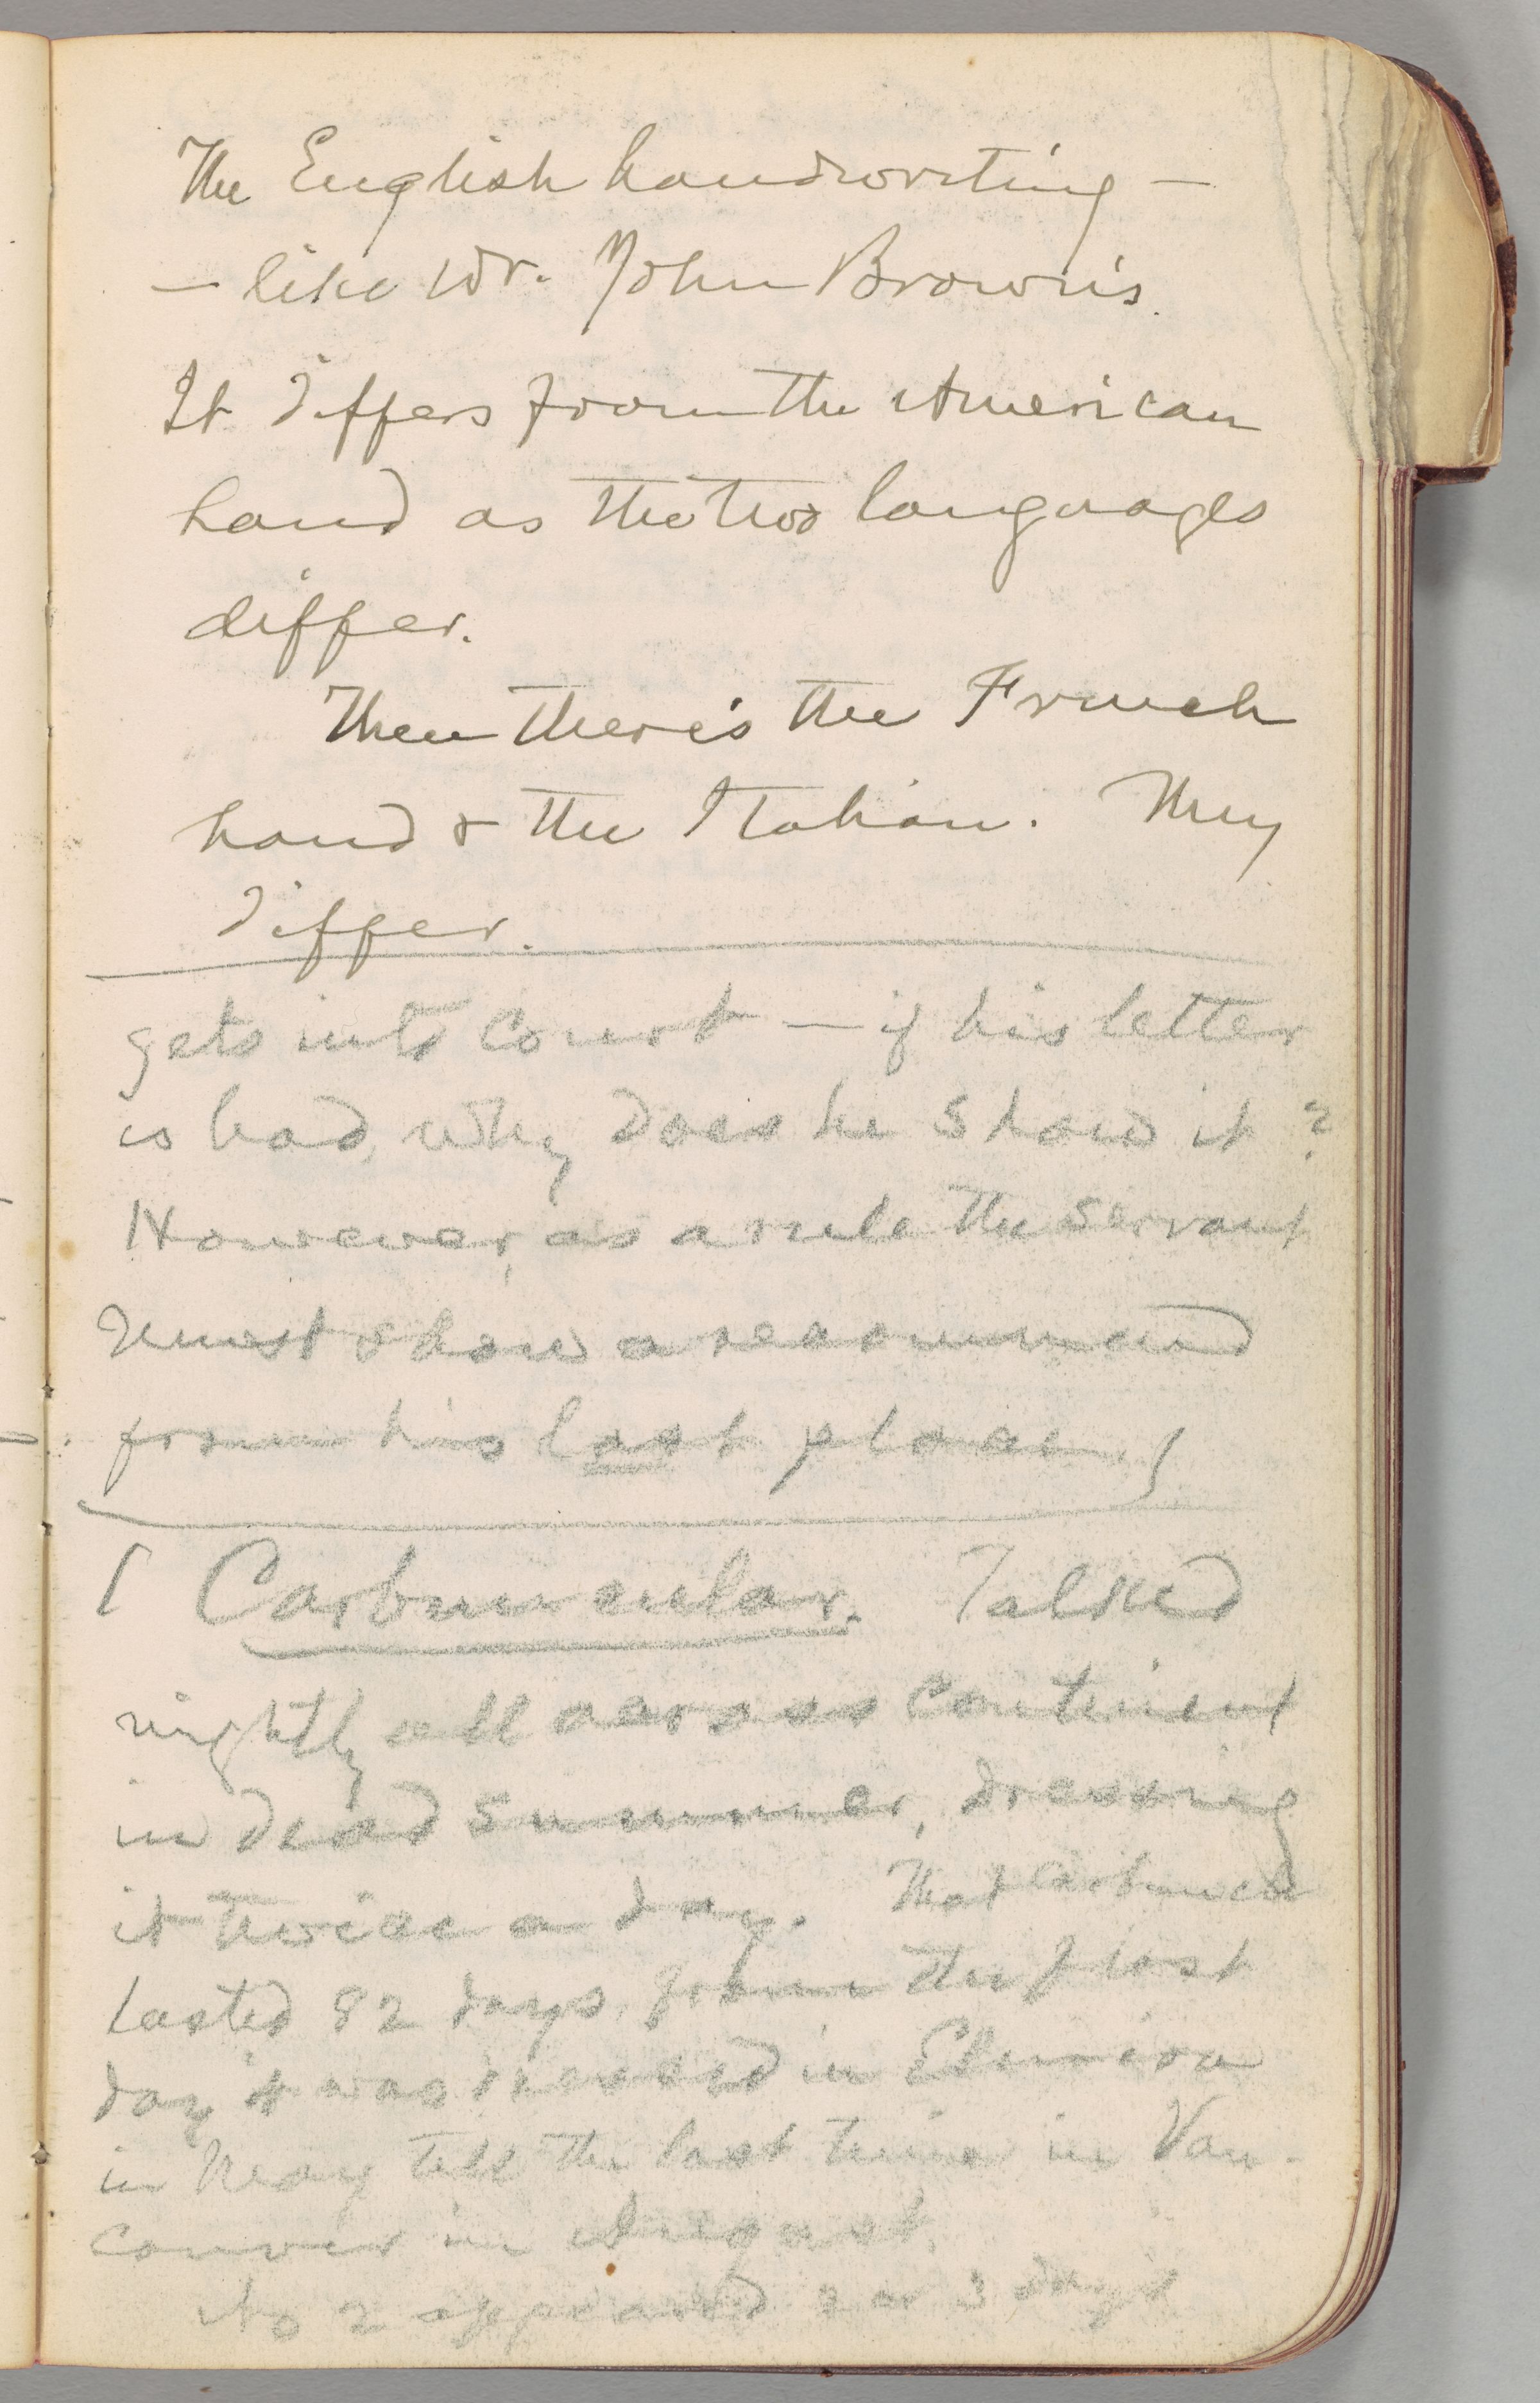 The English handwriting —
— like Dr. John Brown's.
It differs from the American
hand as the two languages
differ.
Then there's the French
hand & the Italian. They
differ.
gets into Court — if his letter
is bad, why does he show it?
However, as a rule the servant
must show a recommend
from his last place.)
[ Carbuncular. Talked
nightly all across continent
in dead summer, dressing
it twice a day. That carbuncle
lasted 82 days, from the first
day it was dressed in Elmira
in May till the last time in Van-
couver in August.
No 2 appeared 2 or 3 days